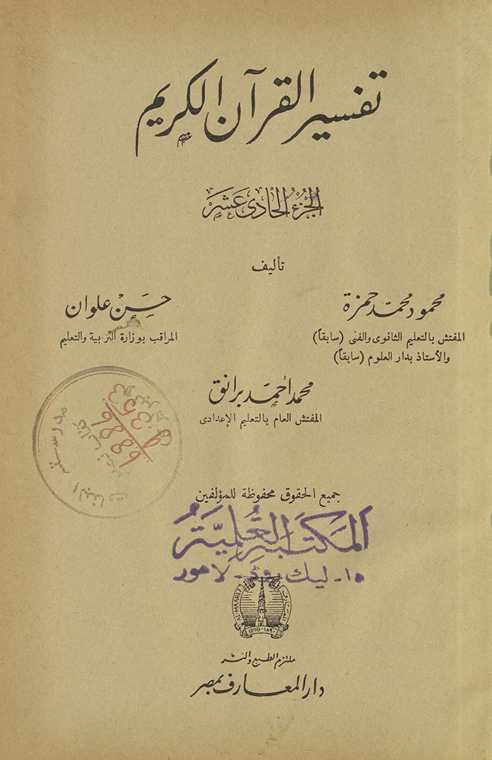 تفسير القرآن الكريم
الجزء الحادى عشر
تأليف
محمود محمد حمزة
المفتش بالتعليم الثانوى والفنى (سابقاً)
والأستاذ بدار العلوم (سابقاً)
حسن علوان
المراقب بوزارة التربية والتعليم
محمد أحمد برانق
المفتش العام بالتعليم الإعدادى
جميع الحقوق محفوظة للمؤلفين
المكتبة العلمية
١٥- ليك رود - لاهور
ملتزم الطبع والنشر
دار المعارف بمصر